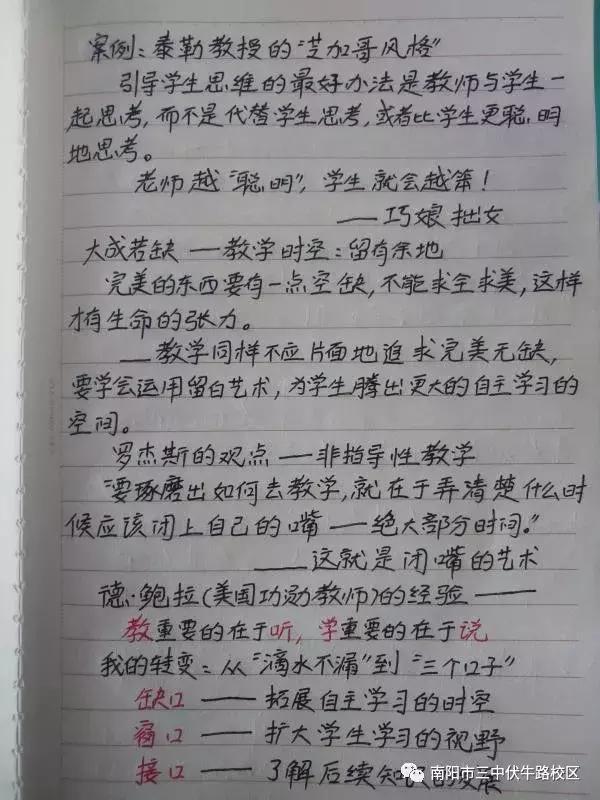 案例：泰勒教授的“芝加哥风格”
引导学生思维的最好办法是教师与学生一
起思考，而不是代替学生思考，或者比学生更聪明
地思考。
老师越“聪明”，学生就会越笨！
——巧娘拙女
大成若缺——教学时空：留有余地
完美的东西要有一点空缺，不能求全求美，这样
才有生命的张力。
——教学同样不应片面地追求完美无缺，
要学会运用留白艺术，为学生腾出更大的自主学习的
空间。
罗杰斯的观点——非指导性教学
“要琢磨出如何去教学，就在于弄清楚什么时
候应该闭上自己的嘴——绝大部分时间。”
——这就是闭嘴的艺术
德·鲍拉（美国功勋教师）的经验——
教重要的在于听，学重要的在于说
我的转变：从“滴水不漏”到“三个口子”
缺口——拓展自主学习的时空
窗口——扩大学生学习的视野
接口——了解后续知识的发展
南阳市三中伏牛路校区